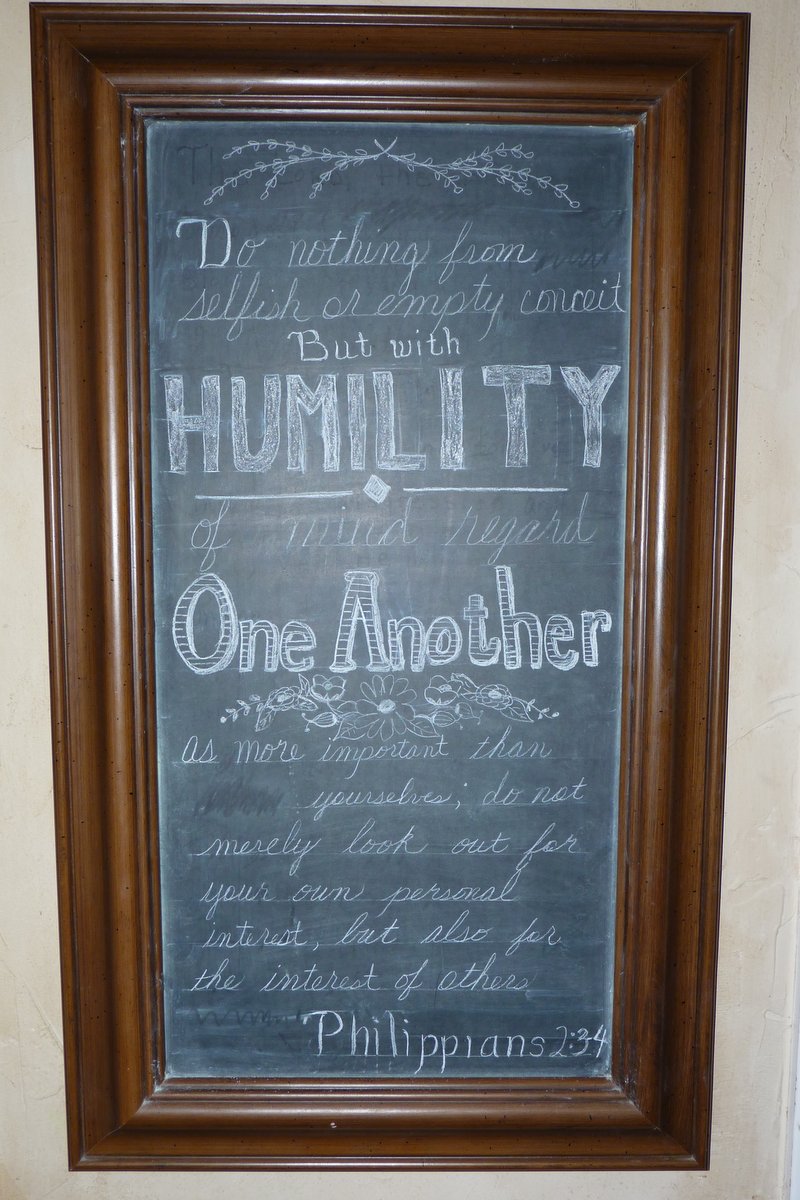 Do nothing from
selfish or empty conceit
But with
HUMILITY
of mind regard
One Another
as more important than
yourselves; do not
merely look out for
your own personal
interest, but also for
the interest of others
Philippians 2:34